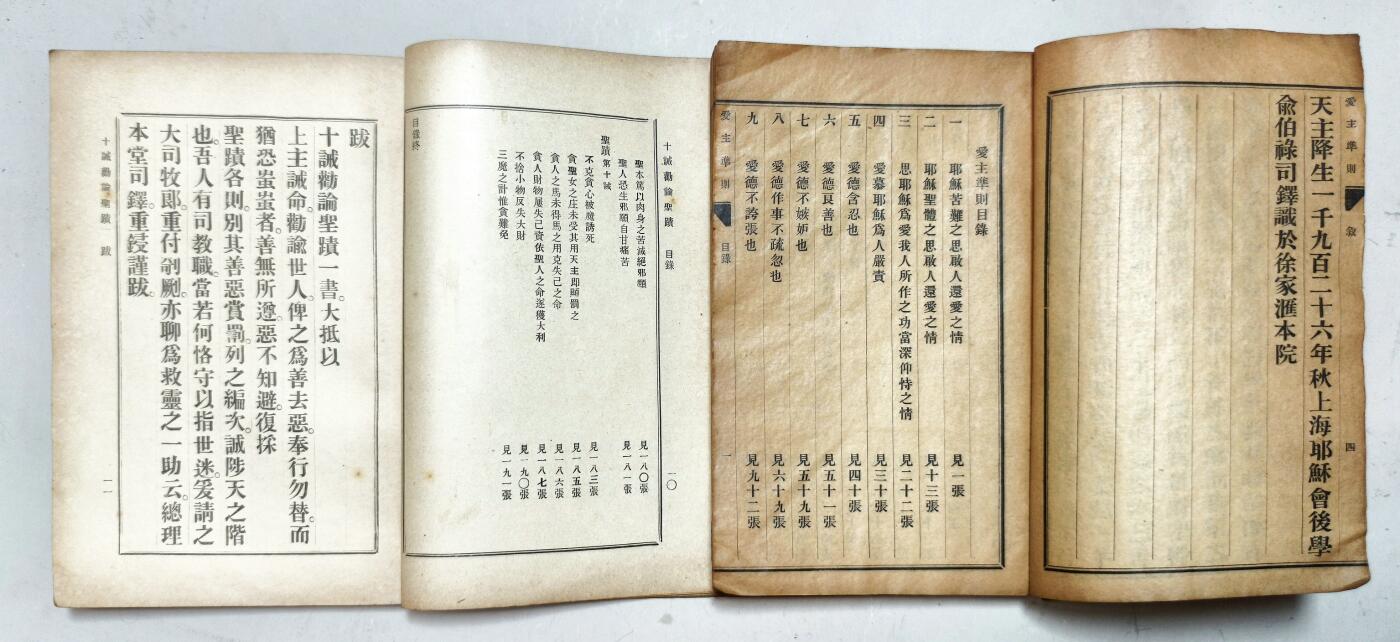 愛主準則 敘 四
天主降生一千九百二十六年秋上海耶穌會後學
兪伯祿司鐸識於徐家滙本院
愛主準則目錄
一 耶穌苦難之思啟人還愛之情 見一張
二 耶穌聖體之思啟人還愛之情 見十三張
三 思耶穌爲愛我人所作之功當深仰恃之情 見二十二張
四 愛慕耶穌爲人嚴責 見三十張
五 愛德含忍也 見四十張
六 愛德良善也 見五十一張
七 愛德不嫉妒也 見五十九張
八 愛德作事不疏忽也 見六十九張
九 愛德不誇張也 見九十二張
愛主準則 目錄 一
十誡勸論聖蹟 目錄 一〇
聖本篤以肉身之苦滅絕邪願 見一八〇張
聖人恐生邪願自甘痛苦 見一八一張
聖蹟第十誡
不克貪心被魔誘死 見一八三張
貪聖女之庄未受其用天主即顯罰之 見一八五張
貪人之馬未得馬之用克失己之命 見一八六張
貪人財物屢失己資依聖人之命遂獲大利 見一八七張
不捨小物反失大財 見一九〇張
三魔之計惟貪難免 見一九一張
目錄終
跋
十誡勸論聖蹟一書。大抵以
上主誡命。勸諭世人。俾之爲善去惡。奉行勿替。而
猶恐蚩蚩者。善無所遵。惡不知避。復採
聖蹟各則。別其善惡賞罰。列之編次。誠陟天之階
也。吾人有司教職。當若何恪守以指世迷。爰請之
大司牧郎。重付剞劂。亦聊爲救靈之一助云。總理
本堂司鐸。重鋟謹跋。
十誡勸論聖蹟 跋 一一